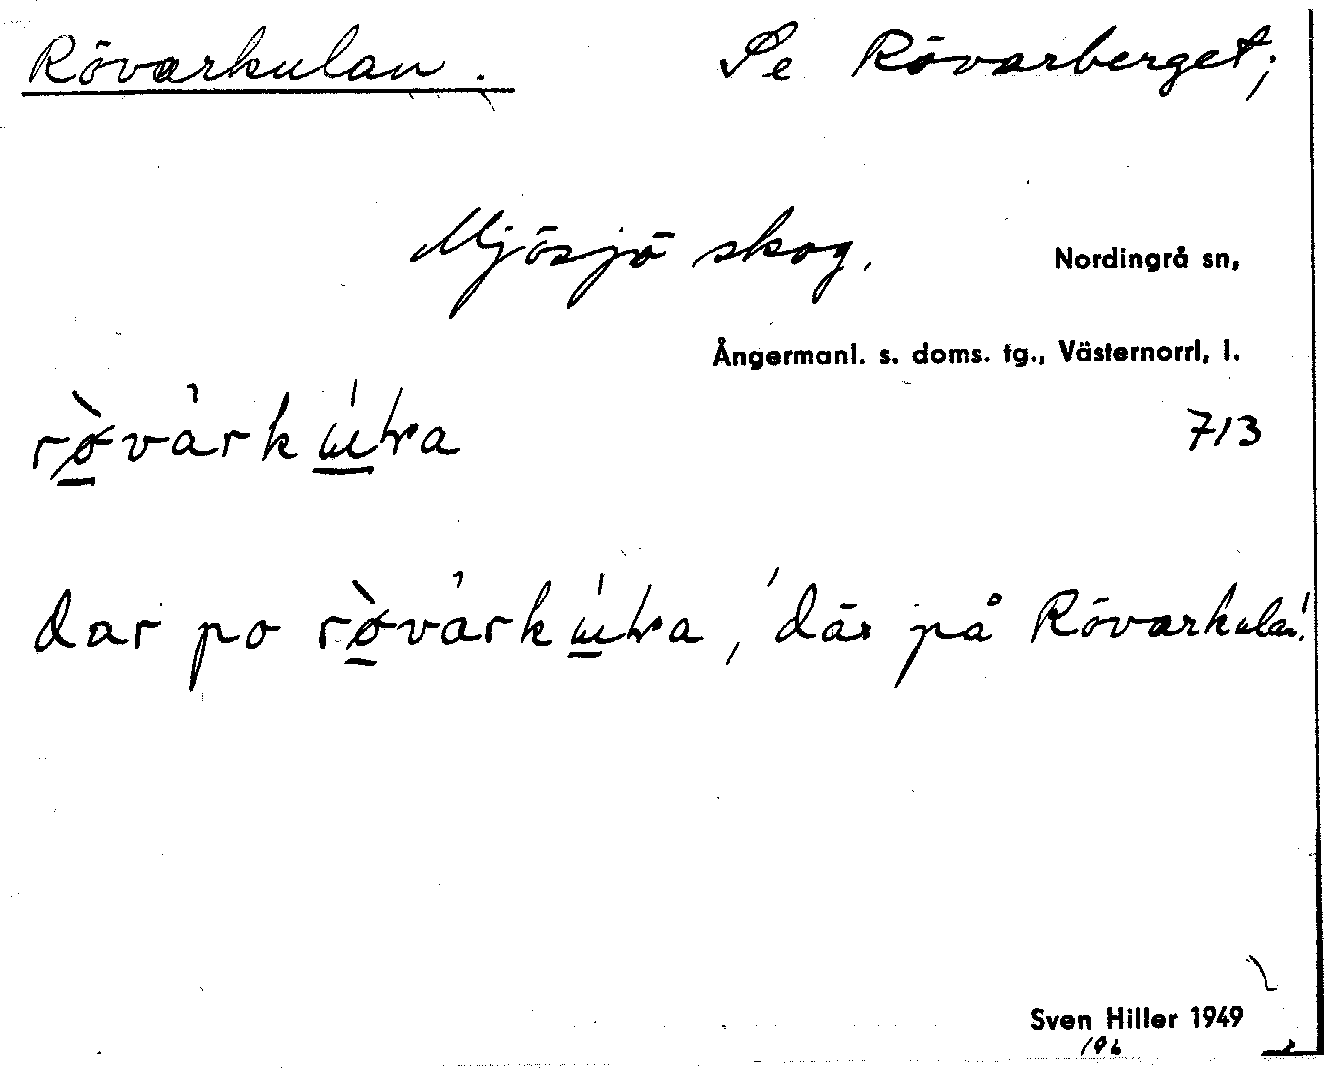 Rövarkulan. Se Rövarberget;
Mjösjö skog. Nordingrå sn,
Ångermanl. s. doms. tg., Västernorrl, l.
713
dar po
, 'där på Rövarkulan'.
Sven Hiller 1949